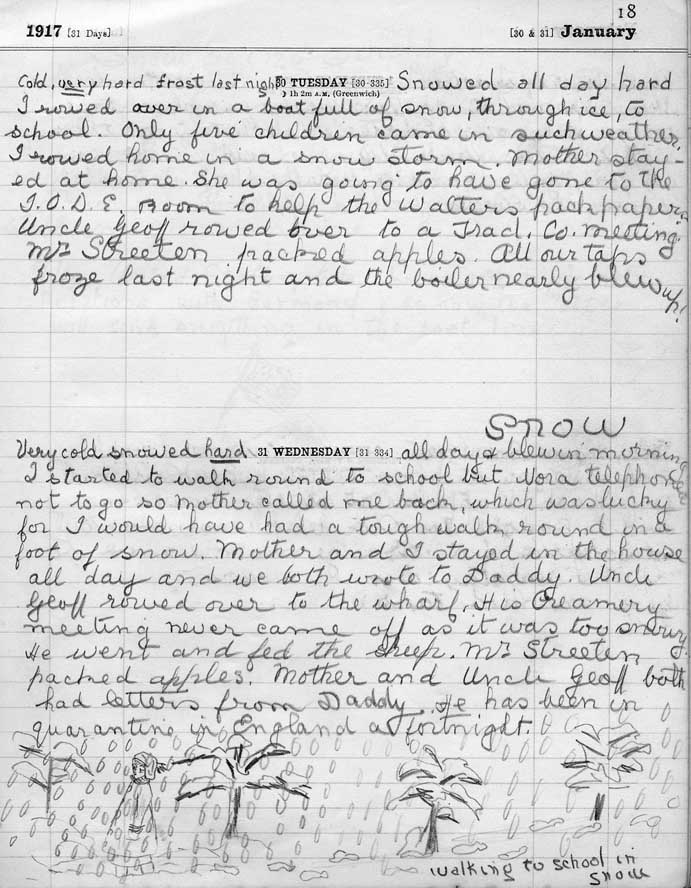 18
1917 [31 Days] [30 & 31] January
Cold, very hard frost last night 30 TUESDAY [30-335] Snowed all day hard
☽ 1h 2m A.M. (Greenwich)
I rowed over in a boat full of snow, through ice, to
school. Only five children came in such weather.
I rowed home in a snow storm. Mother stay-
ed at home. She was going to have gone to the
I.O.D.E. Room to help the Walters pack papers.
Uncle Geoff rowed over to a Trad. Co. meeting.
Mr Streeten packed apples. All our taps
froze last night and the boiler nearly blew up!
Snow
Very cold snowed hard 31 WEDNESDAY [31-334] all day & blew in morning
I started to walk round to school but Nora telephoned
not to go so Mother called me back, which was lucky
for I would have had a tough walk round in a
foot of snow. Mother and I stayed in the house
all day and we both wrote to Daddy. Uncle
Geoff rowed over to the wharf. His Creamery
meeting never came off as it was too snowy.
He went and fed the sheep. Mr Streeten
packed apples. Mother and Uncle Geoff both
had letters from Daddy. He has been in
quarantine in England a fortnight.
walking to school in
snow